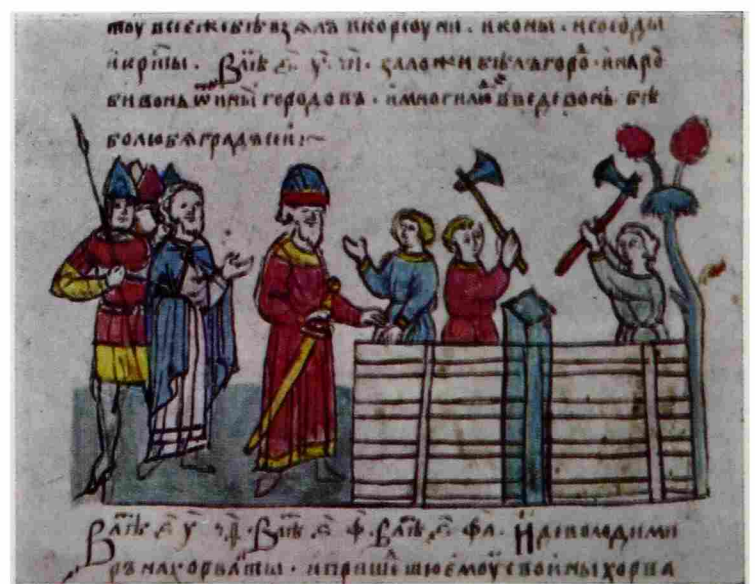 тоу всеже бѣ взялъ в корсоуни . иконы . и сосоуды
и крⷭ҇ты . В лѣⷮ ҂ѕ҃ . у҃ . ч҃и . заложи бѣлъ гороⷣ . и наро
би вонь ѿ инⷯы городовъ . и многи люⷣ введе вонь бѣ
бо любя градъ сии :~
В лѣⷮ ҂ѕ҃ у҃ ч҃ѳ . В лѣⷮ ҂ѕ҃ ф҃ . В лѣⷮ ҂ѕ҃ ф҃а . Иде володими
ръ на корваты . и пришеⷣшю емоу с воины хорва